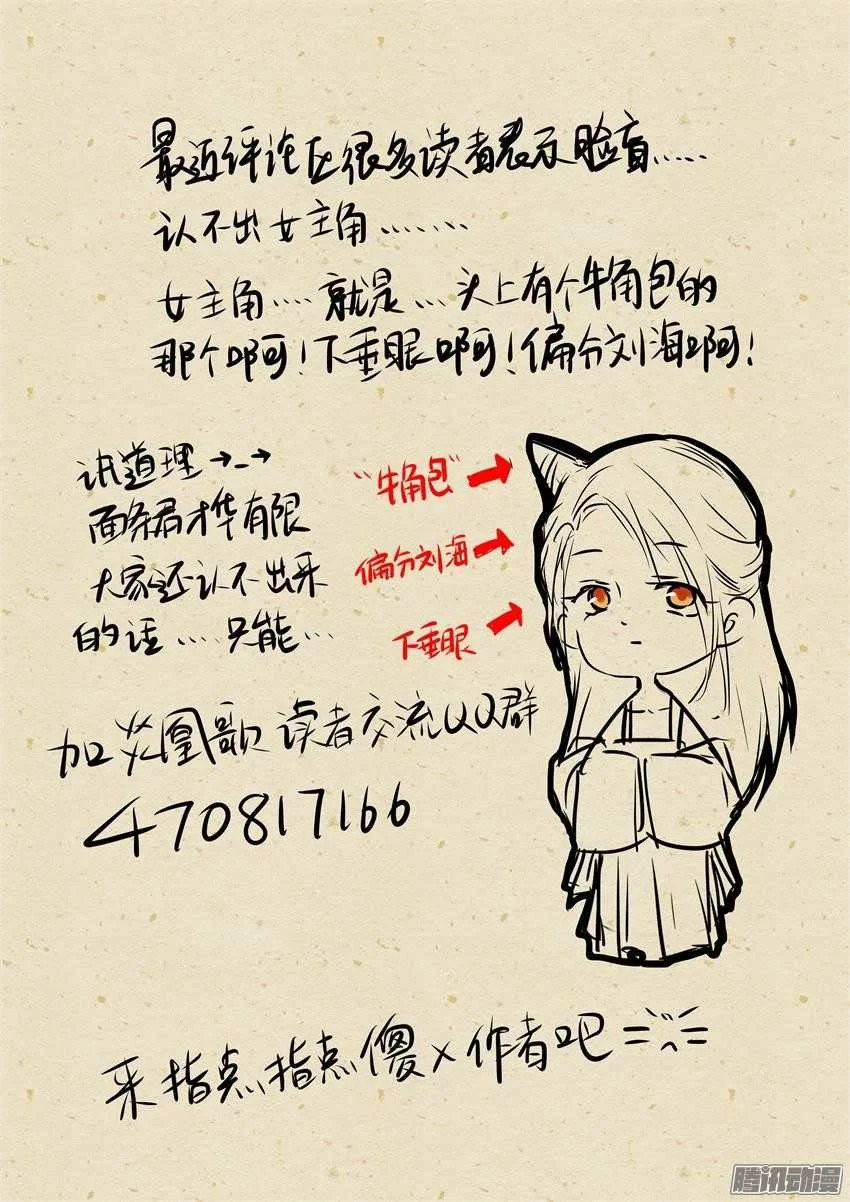 最近评论区很多读者表示脸盲……
认不出女主角……
女主角….就是…头上有个牛角包的
那个啊!下垂眼啊!偏分刘海啊!
讲道理→_→
面条君才华有限
大家还认不出来
的话….只能…
"牛角包"
偏分刘海
下垂眼
加炎凰歌读者交流QQ群
470817166
来指点指点傻x作者吧
腾讯动漫